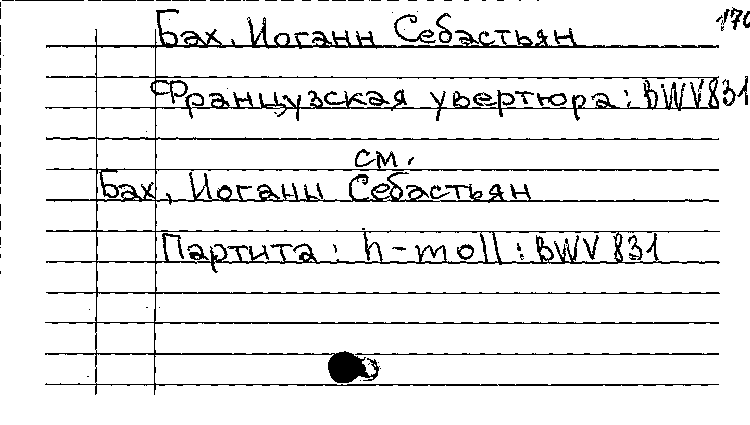 Бах, Иоганн Себастьян
Французская увертюра: BWV 831
см.
Бах, Иоганн Себастьян
Партита: h-moll: BWV 831